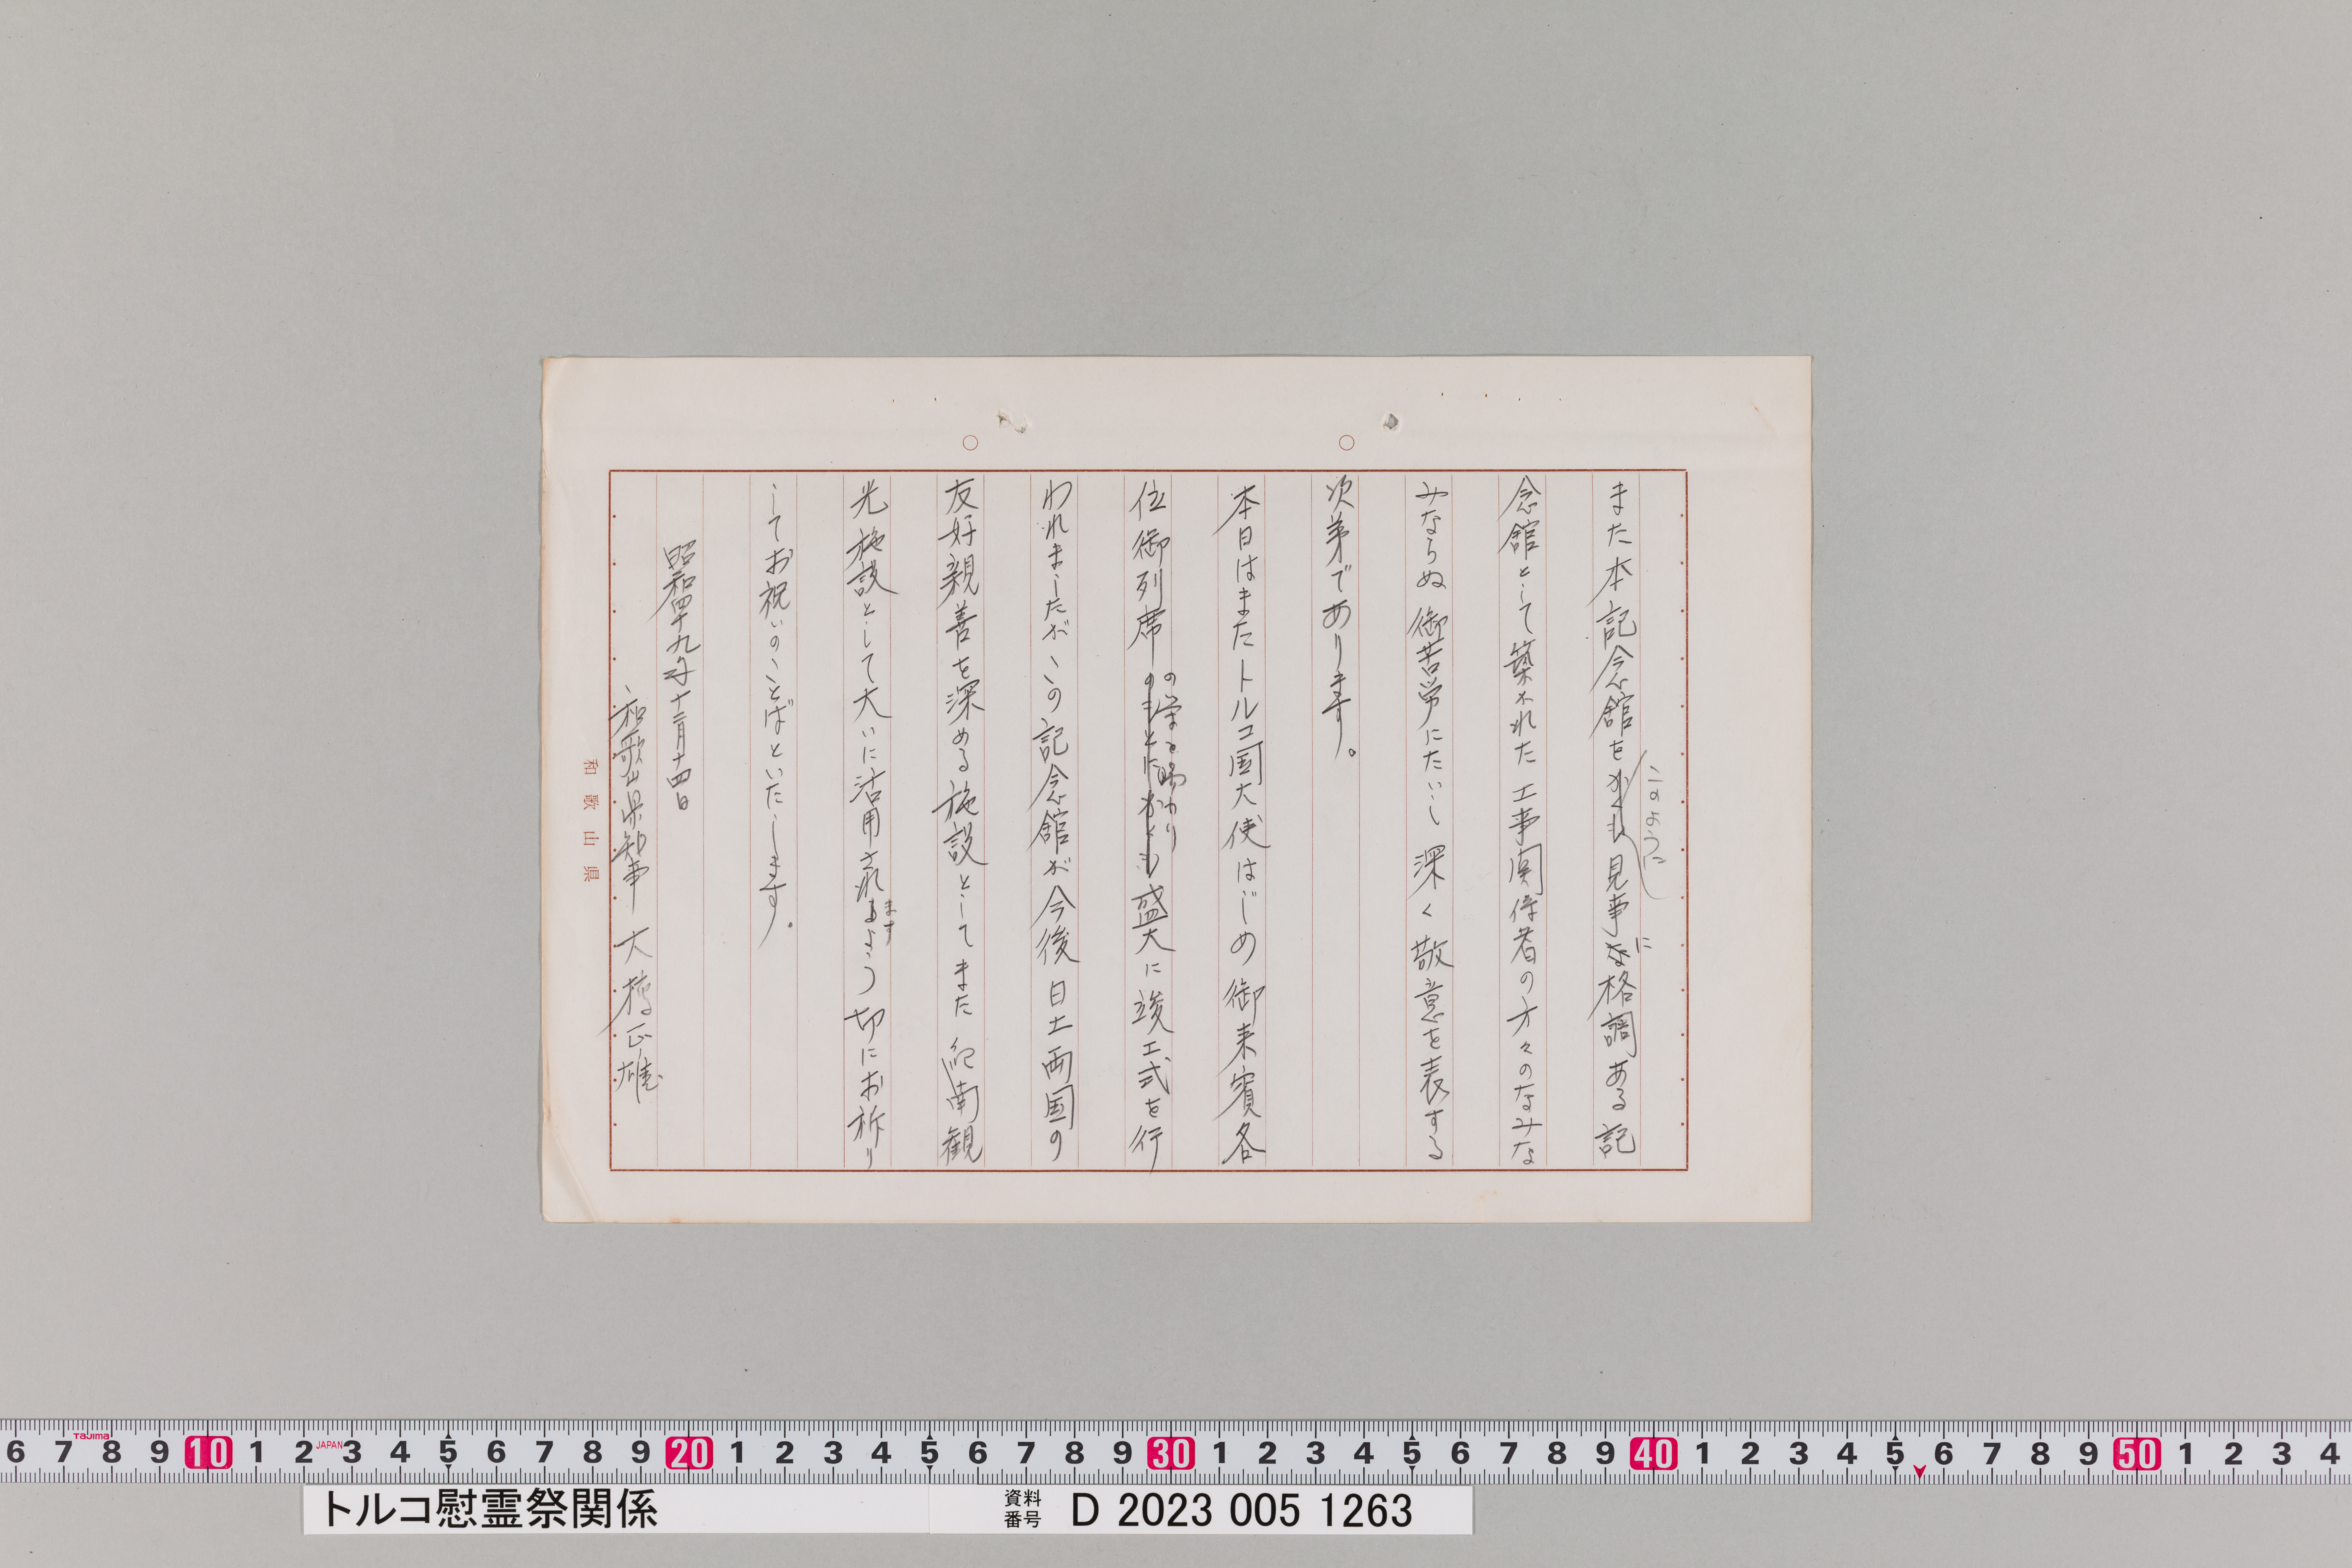 このように
また本記念館をかくも見事な格調ある記
に
念館として築かれた工事関係者の方々のなみな
みならぬ御苦労にたいし深く敬意を表する
次第であります。
本日はまたトルコ国大使はじめ御来賓各
の栄を賜わり
位御列席のもとにかくも盛大に竣工式を行
われましたがこの記念館が今後日土両国の
友好親善を深める施設としてまた紀南観
ます
光施設として大いに活用されるよう切にお祈り
してお祝いのことばといたします。
昭和四十九年十二月十四日
和歌山県知事 大橋正雄
和歌山県
6 7 8 9 10 1 2 3 4 5 6 7 8 9 20 1 2 3 4 5 6 7 8 9 30 1 2 3 4 5 6 7 8 9 40 1 2 3 4 5 6 7 8 9 50 1 2 3 4
Tajima
JAPAN
トルコ慰霊祭関係
資料番号 D 2023 005 1263